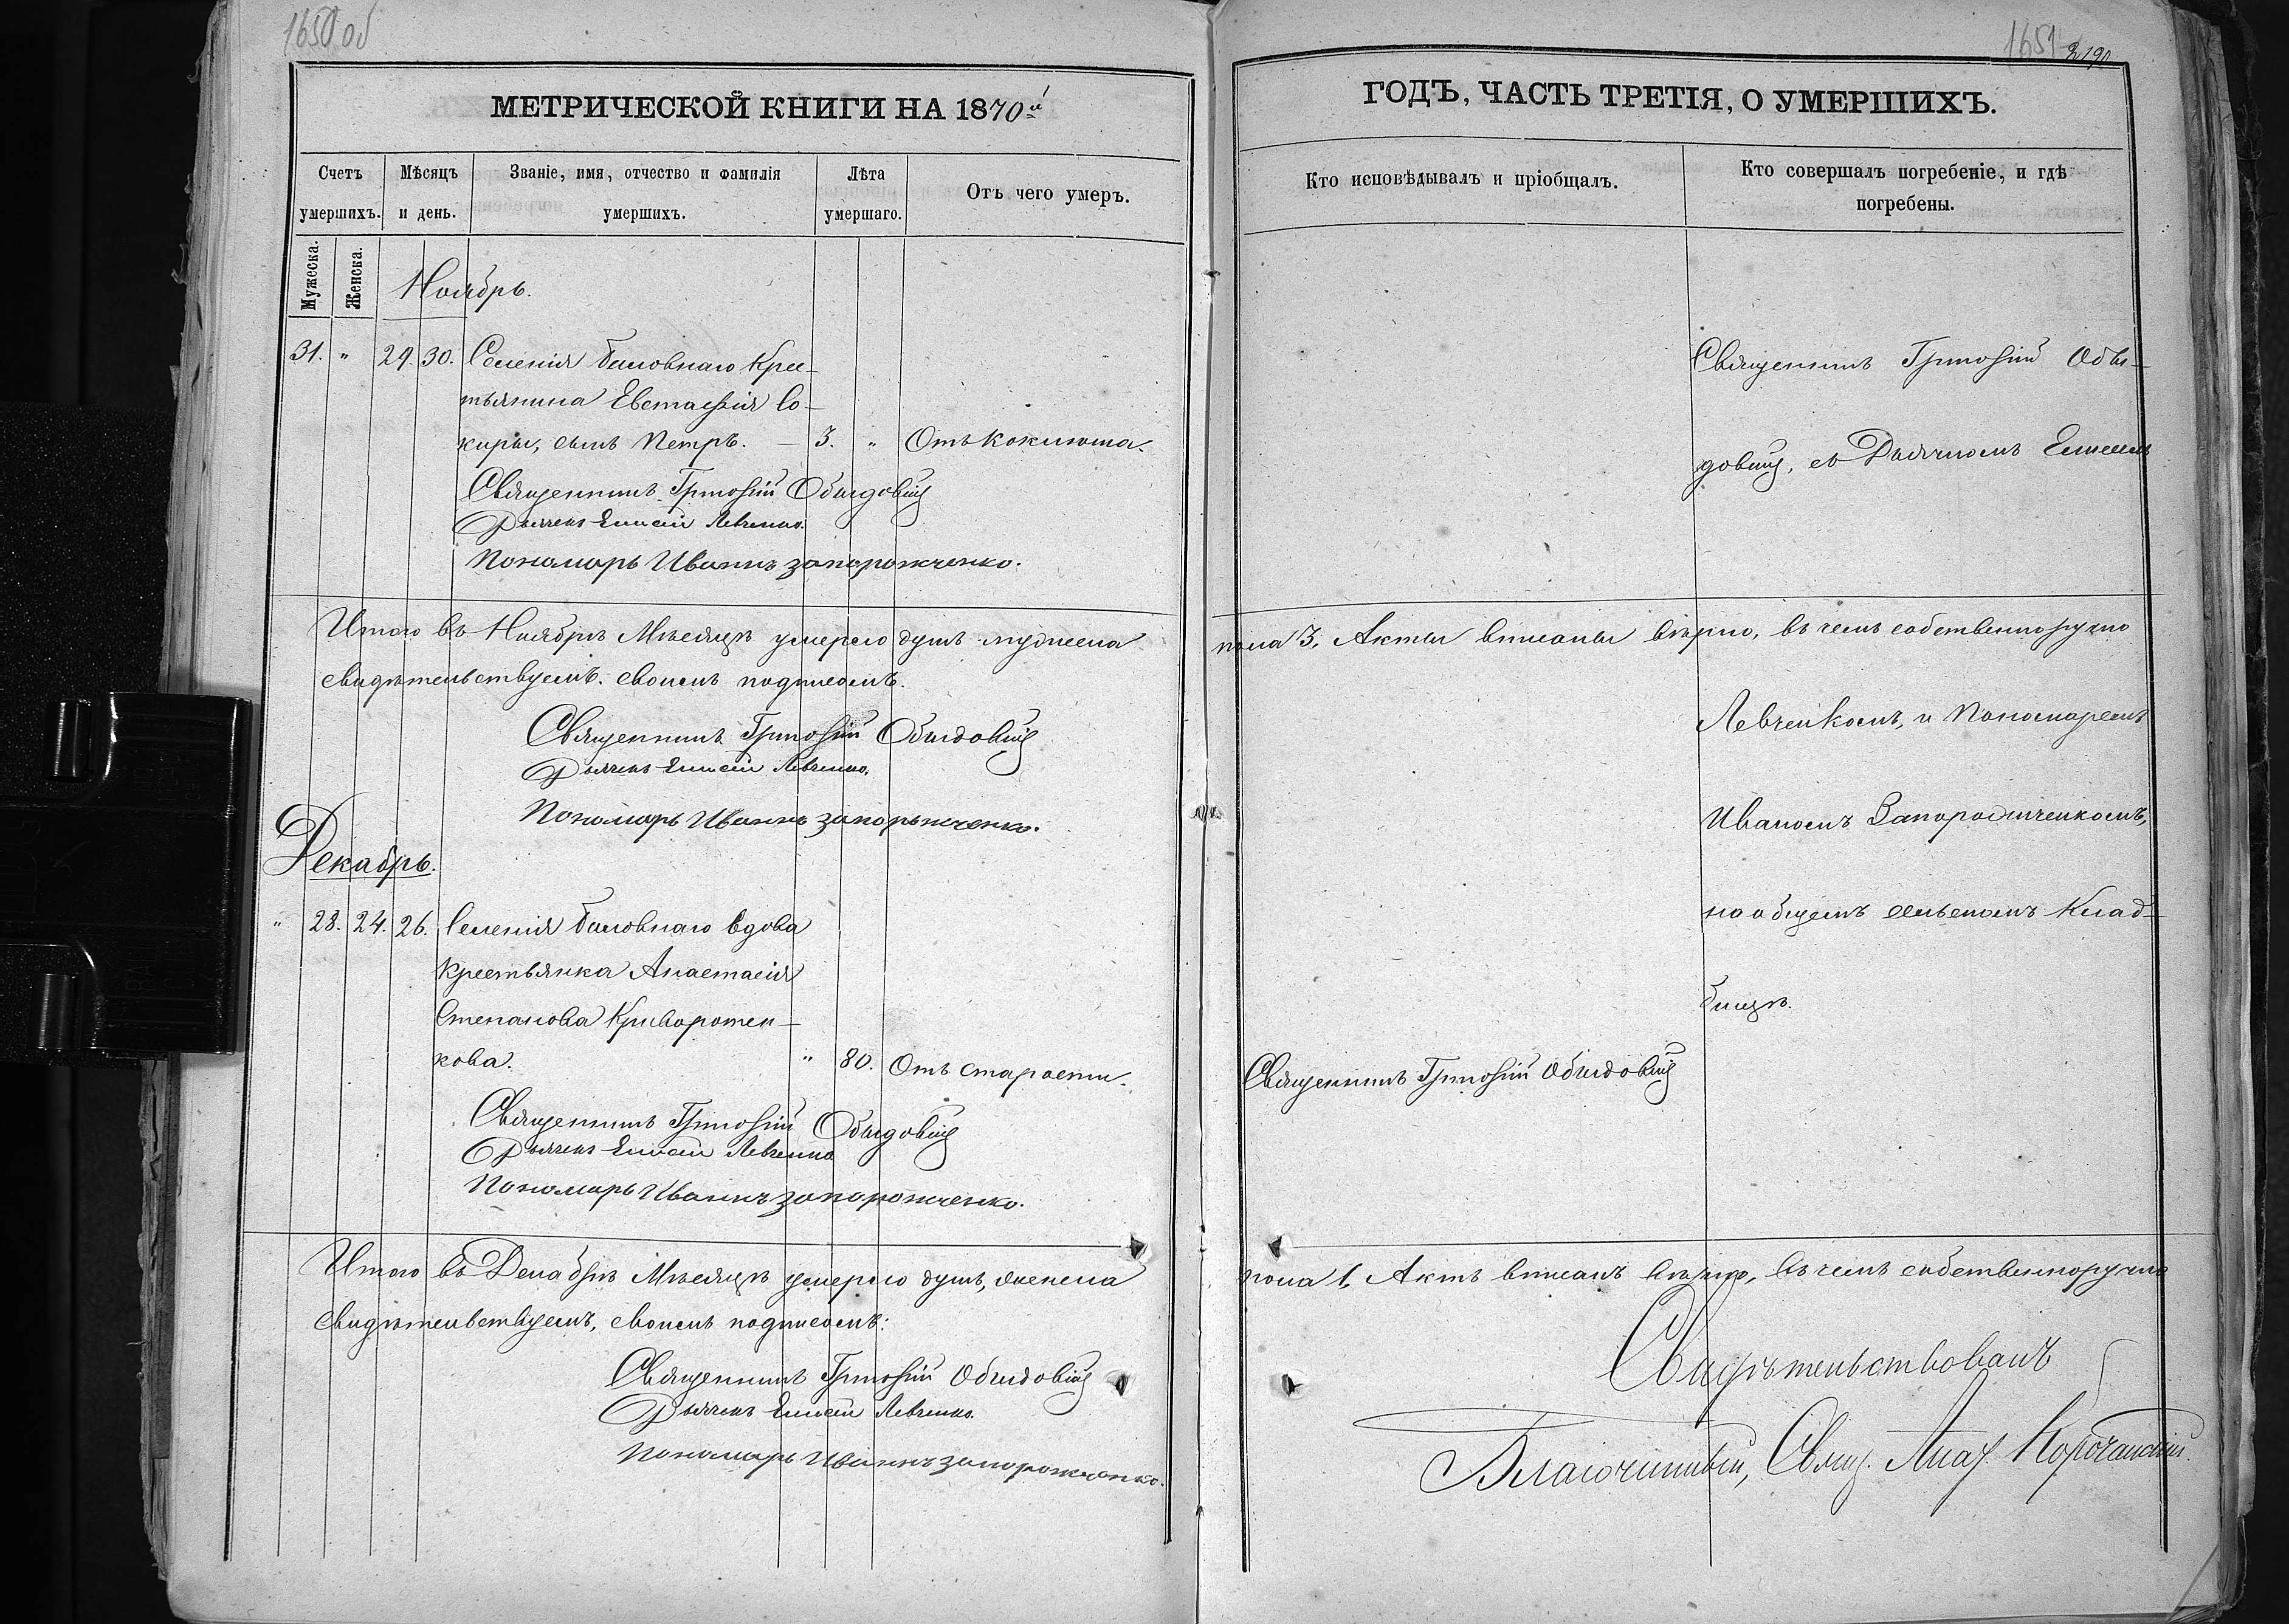 1650 об
МЕТРИЧЕСКОЙ КНИГИ НА 1870й
Счетъ умершихъ.
Мѣсяцъ и день.
Званіе, имя, отчество и фамилія умершихъ.
Лѣта умершаго.
Отъ чего умеръ.
Мужеска.
Женска.
Ноябрь.
31. " 29. 30. Селенія Баловнаго Крес-
тьянина Евстафія Со-
киры, сынъ Петръ. — 3. " Отъ коклюша.
Священникъ Григорій Обыдовскій
Дьячекъ Елисей Левченко.
Пономарь Иваннъ Запорожченко.
Итого въ Ноябрѣ Мѣсяцѣ умерло душъ мужеска
свидѣтельствуемъ. своимъ подписомъ.
Священникъ Григорій Обыдовскій
Дьячекъ Елисей Левченко.
Пономарь Иваннъ Запорожченко.
Декабрь.
" 28. 24. 26. Селенія Баловнаго вдова
Крестьянка Анастасія
Степанова Криворотен-
кова. " 80. Отъ старости.
Священникъ Григорій Обыдовскій
Дьячекъ Елисей Левченко
Пономарь Иваннъ Запорожченко.
Итого въ Декабрѣ Мѣсяцѣ умерло душъ, женска
свидѣтельствуемъ, своимъ подписомъ:
Священникъ Григорій Обыдовскій
Дьячекъ Елисей Левченко.
Пономарь Иваннъ Запорожченко.
1651
ГОДЪ, ЧАСТЬ ТРЕТІЯ, О УМЕРШИХЪ.
Кто исповѣдывалъ и пріобщалъ.
Кто совершалъ погребеніе, и гдѣ погребены.
Священникъ Григорій Обы-
довскій, съ Дьячкомъ Елисеемъ
пола 3, Акты вписаны вѣрно, въ чемъ собственноручно
Левченкомъ, и Пономаремъ
Иваномъ Запорожченкомъ,
на общемъ сельскомъ Клад-
бищѣ.
Священникъ Григорій Обыдовскій
пола 1, Актъ вписанъ вѣрно, въ чемъ собственноручно
Свидѣтельствовалъ
Благочинный, Свящ. Корочанскій.